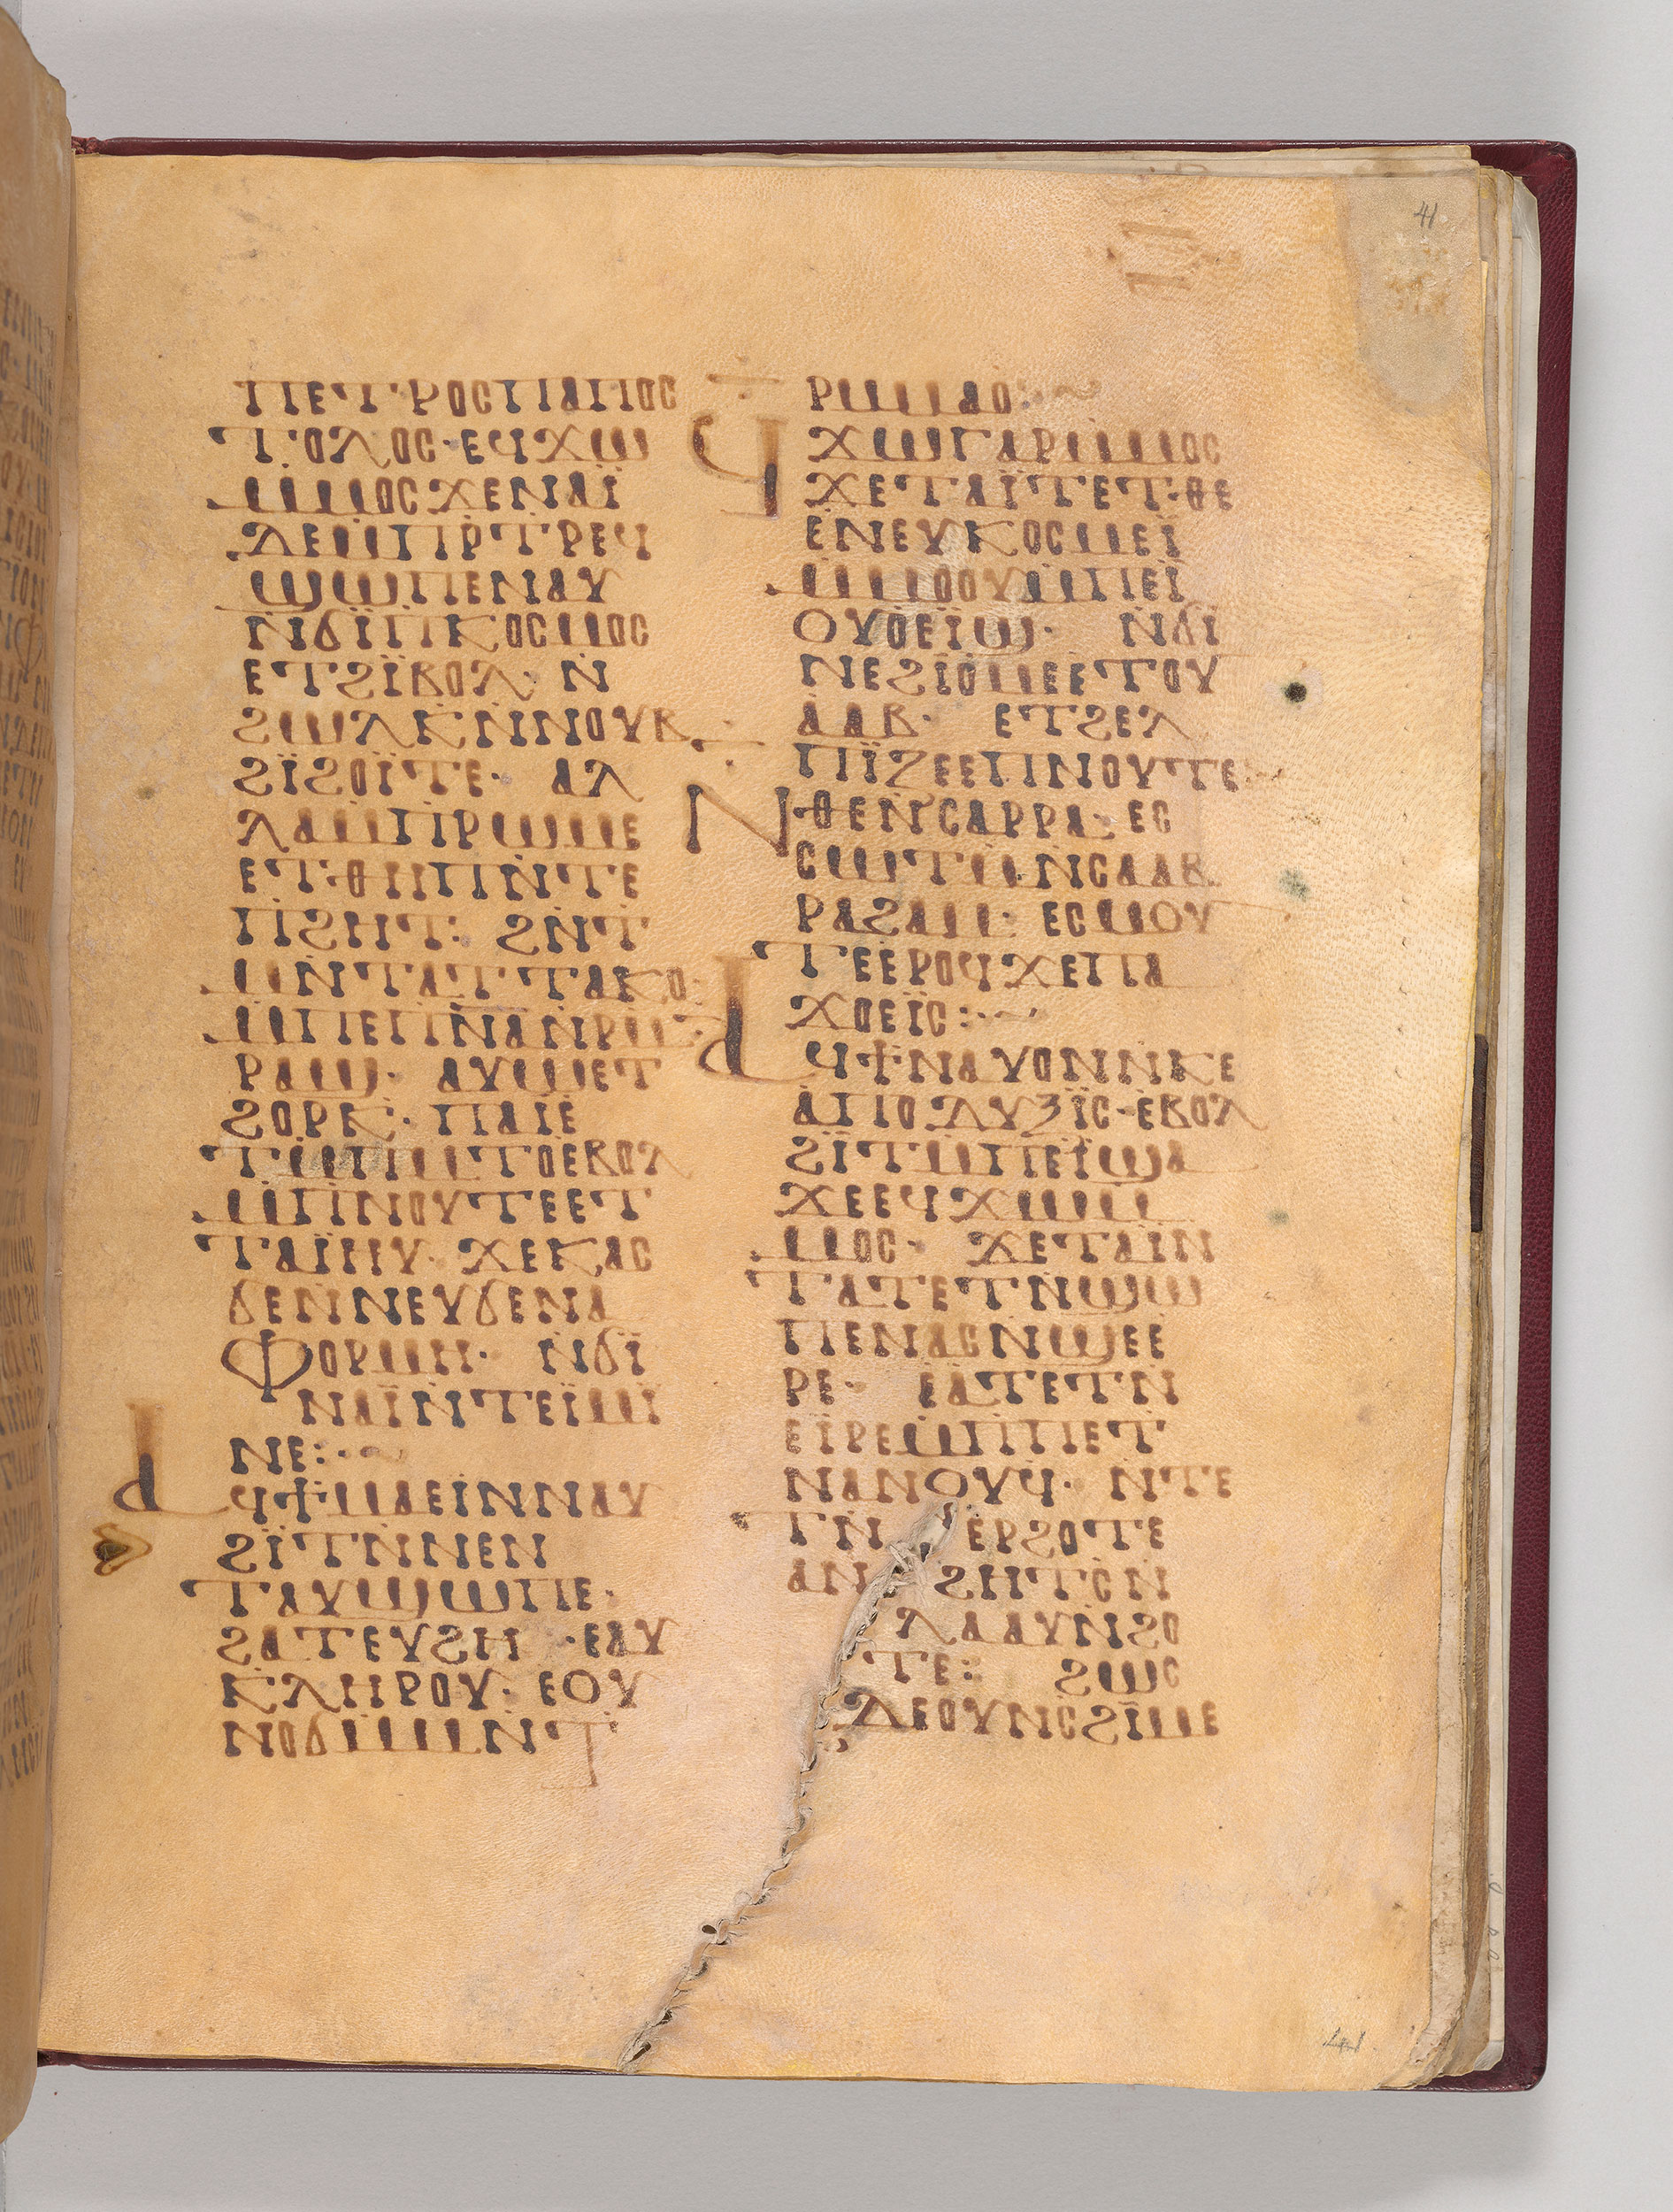 41
ⲡⲉⲧⲣⲟⲥⲡⲁⲡⲟⲥ
ⲧⲟⲗⲟⲥ·ⲉϥϫⲱ
ⲙⲙⲟⲥϫⲉⲛⲁⲓ̈
ⲇⲉⲙⲡⲣⲧⲣⲉϥ
ϣⲱⲡⲉⲛⲁⲩ
ⲛϭⲓ̈ⲡⲕⲟⲥⲙⲟⲥ
ⲉⲧϩⲓ̈ⲃⲟⲗ· ⲛ
ϩⲱⲗⲕⲛⲛⲟⲩⲃ
ϩⲓ̈ϩⲟⲓ̈ⲧⲉ· ⲁⲗ
ⲗⲁⲙⲡⲣⲱⲙⲉ
ⲉⲧϩⲏⲡⲛⲧⲉ
ⲡϩⲏⲧ: ϩⲛⲧ
ⲙⲛⲧⲁⲧⲧⲁⲕⲟ·
ⲙⲡⲉⲡⲛⲁⲛⲣⲙ
ⲣⲁϣ· ⲁⲩⲱⲉⲧ
ϩⲟⲣⲕ· ⲡⲁⲓ̈ⲉ
ⲧⲙⲡⲙⲧⲟⲉⲃⲟⲗ
ⲙⲡⲛⲟⲩⲧⲉⲉⲧ
ⲧⲁⲓ̈ⲏⲩ· ϫⲉⲕⲁⲥ
ϭⲉⲛⲛⲉⲩϭⲉⲛⲁ
ⲫⲟⲣⲙⲏ· ⲛϭⲓ̈
ⲛⲁⲓ̈ⲛⲧⲉⲓ̈ⲙⲓ
ⲛⲉ:·~
ⲁϥϯⲙⲁⲉⲓⲛⲛⲁⲩ
ϩⲓ̈ⲧⲛⲛⲉⲛ
ⲧⲁⲩϣⲱⲡⲉ·
ϩⲁⲧⲉⲩϩⲏ ·ⲉⲁⲩ
ⲕⲗⲏⲣⲟⲩ· ⲉⲟⲩ
ⲛⲟϭⲙⲙⲛⲧ
ⲣⲙⲙⲁⲟ:·~
ϥϫⲱⲅⲁⲣⲙⲙⲟⲥ
ϫⲉⲧⲁⲓ̈ⲧⲉⲧϩⲉ
ⲉⲛⲉⲩⲕⲟⲥⲙⲉⲓ̈
ⲙⲙⲟⲟⲩⲙⲡⲉⲓ̈
ⲟⲩⲟⲉⲓ̈ϣ· ⲛϭⲓ
ⲛⲉϩⲓ̈ⲟⲙⲉⲉⲧⲟⲩ
ⲁⲁⲃ· ⲉⲧϩⲉⲗ
ⲡⲓ̈ⲍⲉⲉⲡⲛⲟⲩⲧⲉ·
ⲛⲑⲉⲛⲥⲁⲣⲣⲁ· ⲉⲥ
ⲥⲱⲧⲙⲛⲥⲁⲁⲃ
ⲣⲁϩⲁⲙ· ⲉⲥⲙⲟⲩ
ⲧⲉⲉⲣⲟϥϫⲉⲡⲁ
ϫⲟⲉⲓ̈ⲥ:·~
ⲁϥϯⲛⲁⲩⲟⲛⲛⲕⲉ
ⲁⲡⲟⲇⲩⲝⲓ̈ⲥ·ⲉⲃⲟⲗ
ϩⲓ̈ⲧⲙⲡⲉⲓ̈ϣⲁ
ϫⲉⲉϥϫⲱⲙ
ⲙⲟⲥ· ϫⲉⲧⲁⲓ̈ⲛ
ⲧⲁⲧⲉⲧⲛϣⲱ
ⲡⲉⲛⲁⲥⲛϣⲉⲉ
ⲣⲉ· ⲉⲁⲧⲉⲧⲛ
ⲉⲓⲣⲉⲙⲡⲡⲉⲧ
ⲛⲁⲛⲟⲩϥ· ⲛⲧⲉ
ⲧⲛ ⲉⲣϩⲟⲧⲉ
ⲁⲛ ϩⲏⲧⲥⲛ
ⲗⲁⲁⲩⲛϩⲟ
ⲧⲉ: ϩⲱⲥ
ⲇⲉⲟⲩⲛⲥϩⲓ̈ⲙⲉ
41